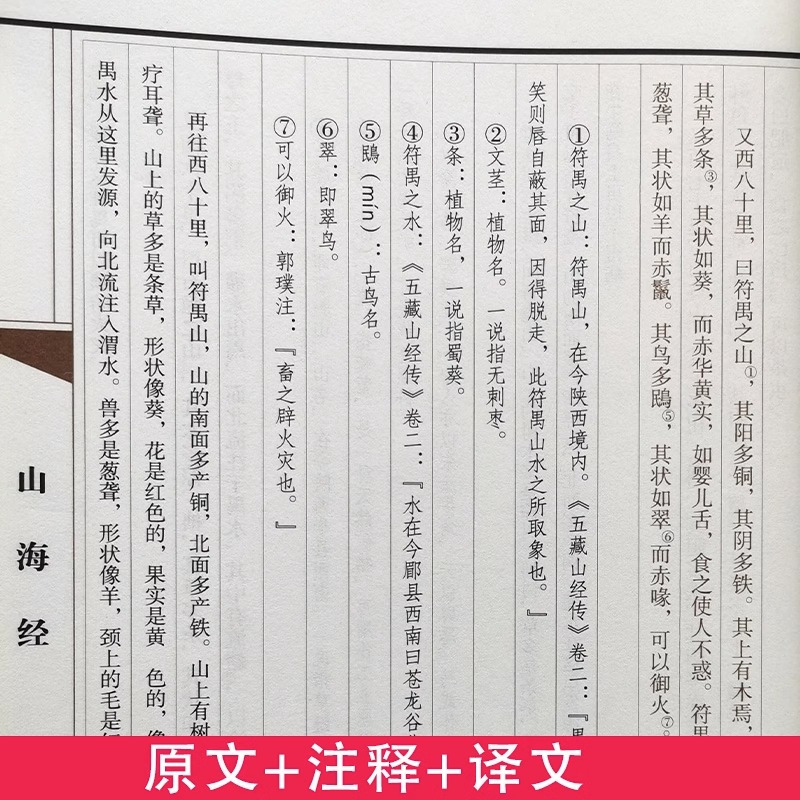 又西八十里，曰符禺之山①，其阳多铜，其阴多铁。其上有木焉，
其草多条③，其状如葵，而赤华黄实，如婴儿舌，食之使人不惑。符
葱聋，其状如羊而赤鬣。其鸟多鴖⑤，其状如翠⑥而赤喙，可以御火⑦。
①符禺之山：符禺山，在今陕西境内。《五藏山经传》卷二：『禺
笑则唇自蔽其面，因得脱走，此符禺山水之所取象也。』
②文茎：植物名。一说指无刺枣。
③条：植物名，一说指蜀葵。
④符禺之水：《五藏山经传》卷二：『水在今郿县西南曰苍龙谷
⑤鴖（mín）：古鸟名。
⑥翠：即翠鸟。
⑦可以御火：郭璞注：『畜之辟火灾也。』
再往西八十里，叫符禺山，山的南面多产铜，北面多产铁。山上有树
疗耳聋。山上的草多是条草，形状像葵，花是红色的，果实是黄 色的，像
禺水从这里发源，向北流注入渭水。兽多是葱聋，形状像羊，颈上的毛是
山海经
原文+注释+译文